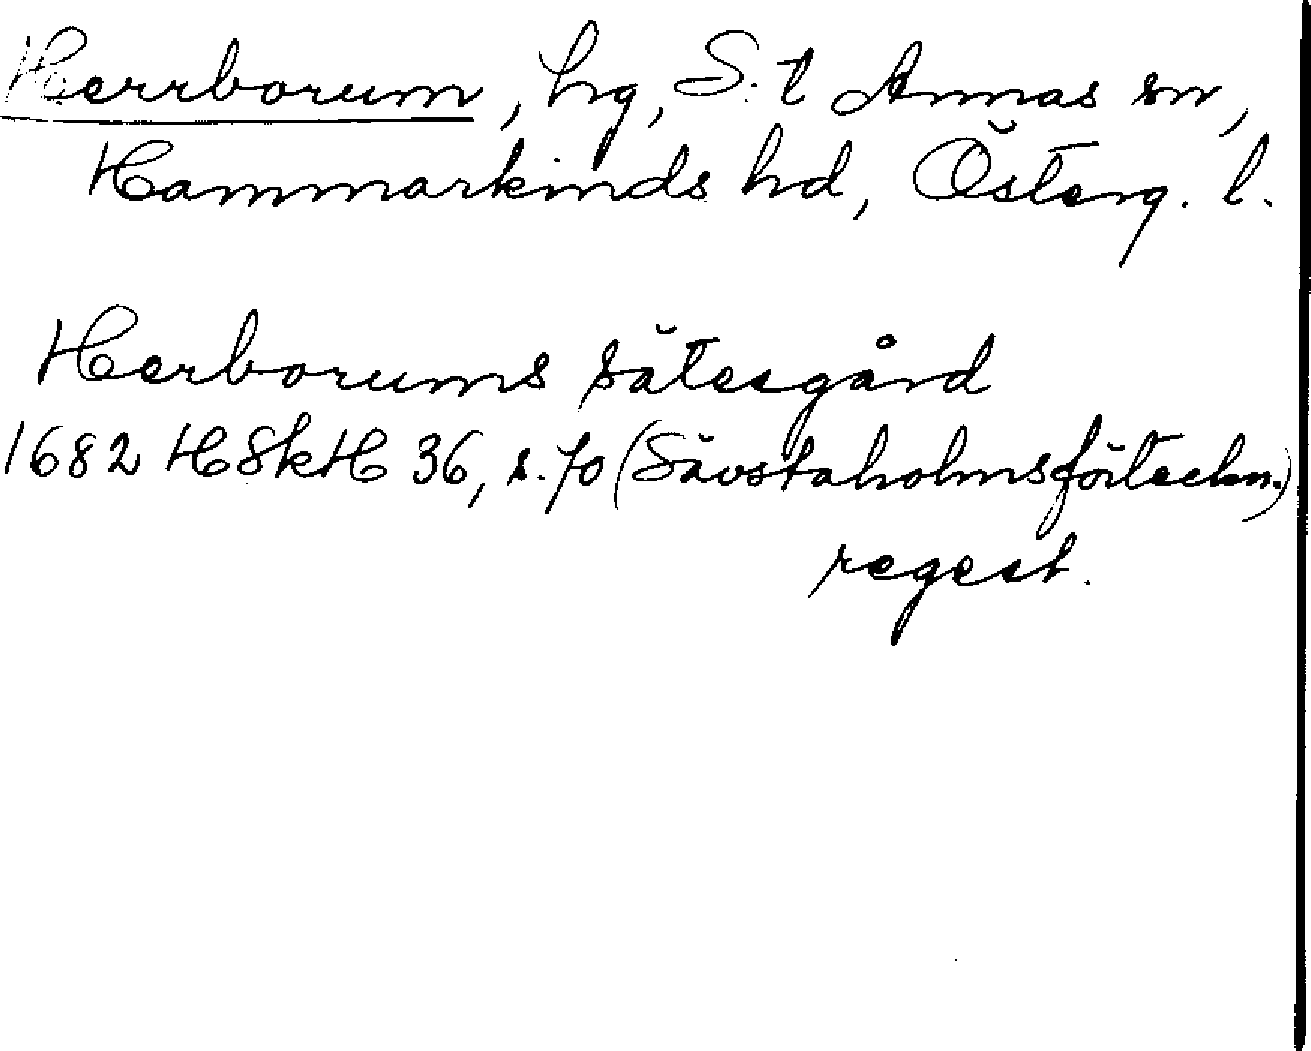 Herrborum, hg, S:t Annas sn,
Hammarkinds hd, Österg. l.
Herborums sätesgård
1682 HSkH 36, s. 70 (Sävstaholmsförteckn.)
regest.